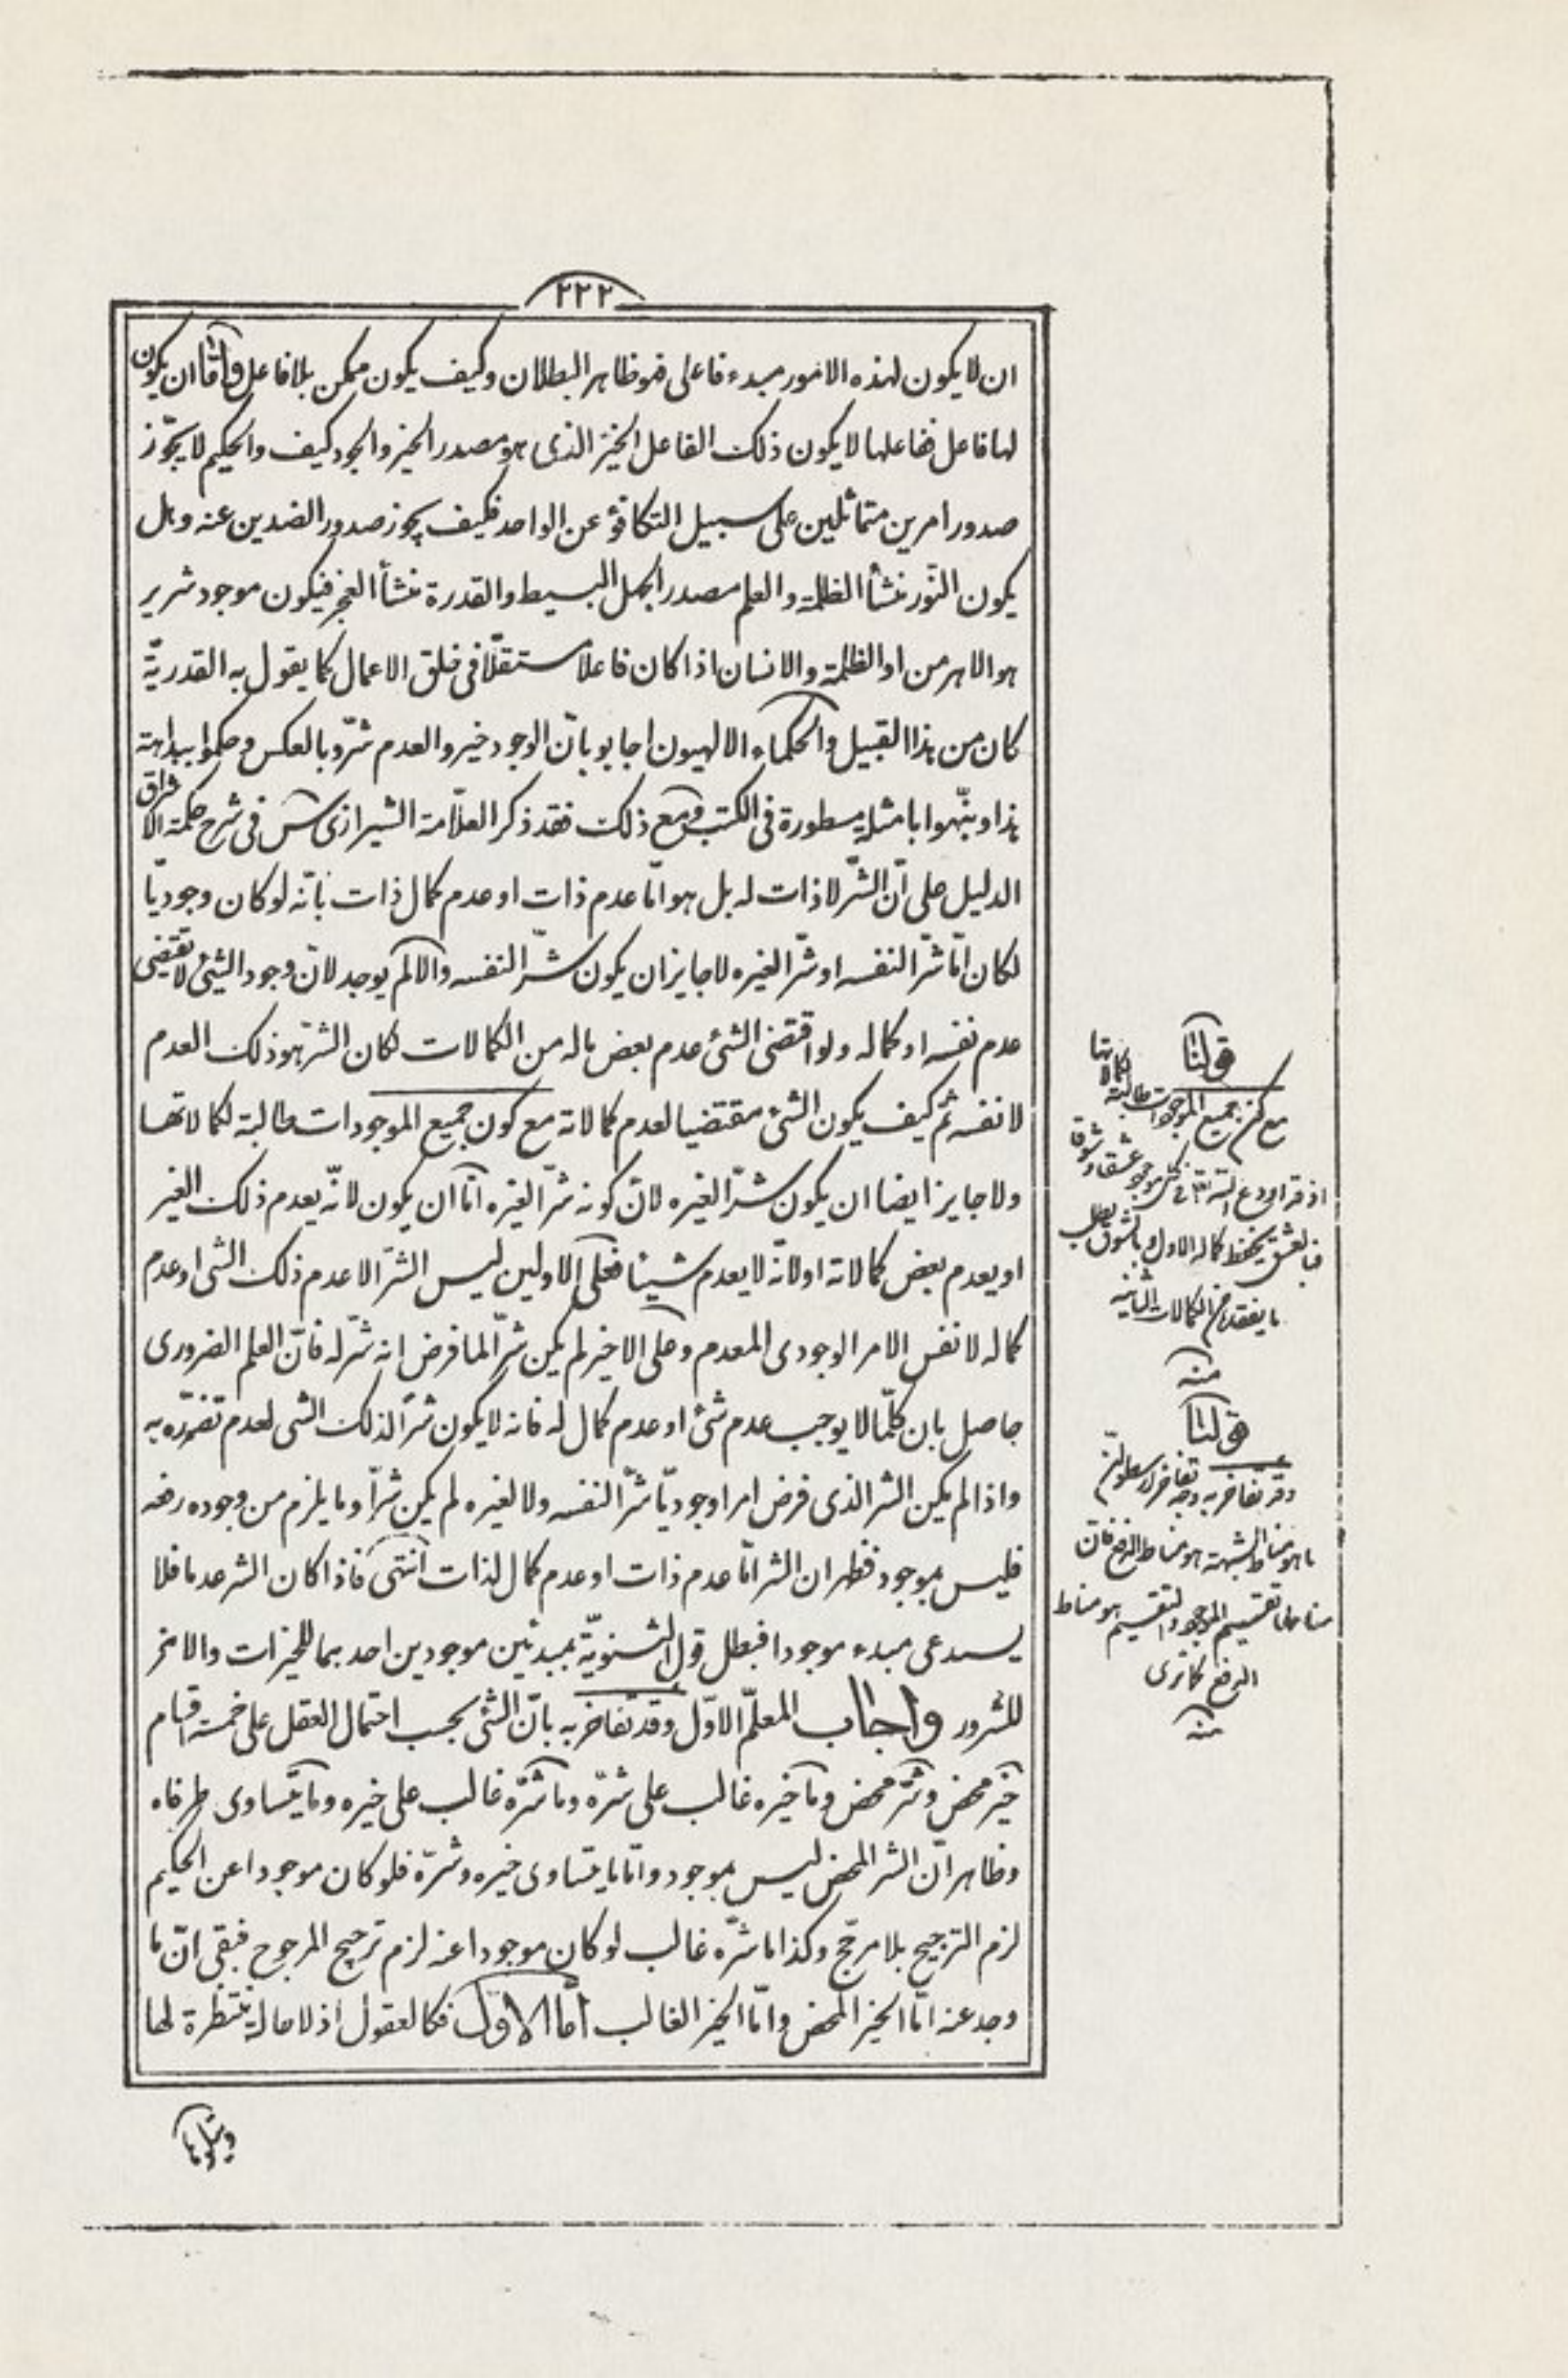 ٢٢٢
ان لا يكون لهذه الامور مبدء فاعلى فهو ظاهر البطلان وكيف يكون ممكن بلا فاعل وامّا ان يكون
لها فاعل ففاعلها لا يكون ذلك الفاعل الخيّر الذى هو مصدر الخير والجود كيف والحكيم لا يجوّز
صدور امرين متماثلين على سبيل التكافؤ عن الواحد فكيف يجوز صدور الضدين عنه وهل
يكون النّور منشأ الظلمة والعلم مصدر الجهل البسيط والقدرة منشأ العجز فيكون موجود شرير
هو الاهرمن او الظلمة والانسان اذا كان فاعلا مستقلّا فى خلق الاعمال كما يقول به القدريّة
كان من هذا القبيل والحكماء الالهيون اجابو بانّ الوجود خير والعدم شرّ وبالعكس وحكموا ببداهته
هذا ونبّهوا بامثلة مسطورة فى الكتب ومع ذلك فقد ذكر العلّامة الشيرازى س فى شرح حكمة الاشراق
الدليل على انّ الشّر لا ذات له بل هو امّا عدم ذات او عدم كمال ذات بانّه لو كان وجوديّا
لكان امّا شرّا لنفسه او شرّا لغيره لا جايز ان يكون شرّا لنفسه والا لم يوجد لانّ وجود الشئ لا يقتضى
عدم نفسه او كماله ولو اقتضى الشئ عدم بعض ماله من الكمالات لكان الشرّ هو ذلك العدم
لا نفسه ثم كيف يكون الشئ مقتضيا لعدم كمالاته مع كون جميع الموجودات طالبة لكمالاتها
ولا جايز ايضا ان يكون شرّا لغيره لانّ كونه شرّا لغيره امّا ان يكون لانّه يعدم ذلك الغير
او يعدم بعض كمالاته او لانّه لا يعدم شيئا فعلى الاولين ليس الشرّ الا عدم ذلك الشى او عدم
كماله لا نفس الامر الوجودى المعدم وعلى الاخير لم يكن شرّا لما فرض انه شرّ له فانّ العلم الضرورى
حاصل بان كلّما لا يوجب عدم شئ او عدم كمال له فانه لا يكون شرّا لذلك الشى لعدم تضرّره به
واذا لم يكن الشر الذى فرض امرا وجوديّا شرّا لنفسه ولا لغيره لم يكن شرّا وما يلزم من وجوده رفعه
فليس بموجود فظهر ان الشر امّا عدم ذات او عدم كمال لذات انتهى فاذا كان الشر عدما فلا
يستدعى مبدء موجودا فبطل قول الثنويّة بمبدئين موجودين احدهما للخيرات والاخر
للشرور واجاب المعلّم الاوّل وقد تفاخر به بانّ الشئ بحسب احتمال العقل على خمسة اقسام
خير محض وشرّ محض وما خيره غالب على شرّه وما شرّه غالب على خيره وما يتساوى طرفاه
وظاهر انّ الشر المحض ليس بموجود وامّا ما يتساوى خيره وشرّه فلو كان موجودا عن الحكيم
لزم الترجيح بلا مرجّح وكذا ما شرّه غالب لو كان موجودا عنه لزم ترجيح المرجوح فبقى انّ ما
وجد عنه امّا الخير المحض وامّا الخير الغالب امّا الاوّل فكالعقول اذ لا حالة منتظرة لها
ويتلوها
قولنا
مع كون جميع الموجودات طالبة لكمالاتها
اذ قد اودع الله تعالى فى كل موجود عشقا وشوقا
فبالعشق يحفظ كماله الاول وبالشوق يطلب
ما يفقد من الكمالات الثانية
منه
قولنا
وقد تفاخر به وجه تفاخر ارسطو انّ
ما هو مناط الشبهة هو مناط الدفع فانّ
مناطها تقسيم الموجود والتقسيم هو مناط
الدفع كما ترى
منه